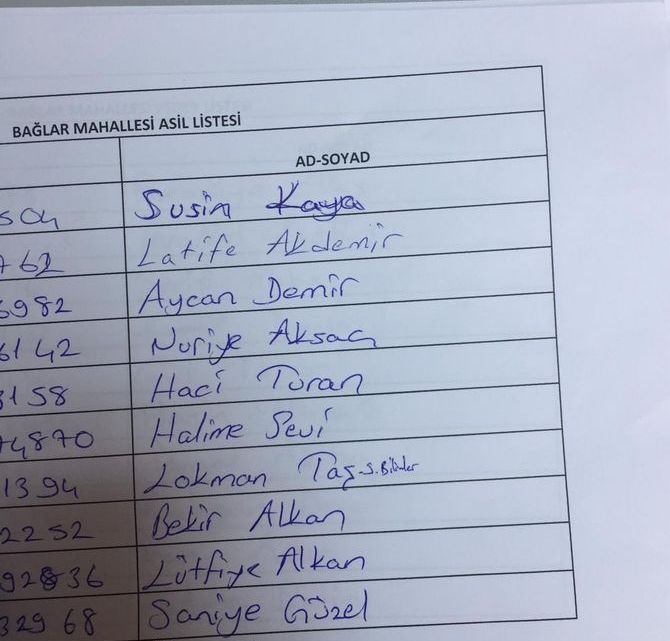 BAĞLAR MAHALLESİ ASİL LİSTESİ
AD-SOYAD
504 Susin Kaya
762 Latife Akdemir
6982 Aycan Demir
6142 Nuriye Aksaç
3158 Haci Turan
74870 Halime Sevi
1394 Lokman Taş-S.Bilimler
2252 Bekir Alkan
92836 Lütfiye Alkan
32968 Saniye Güzel